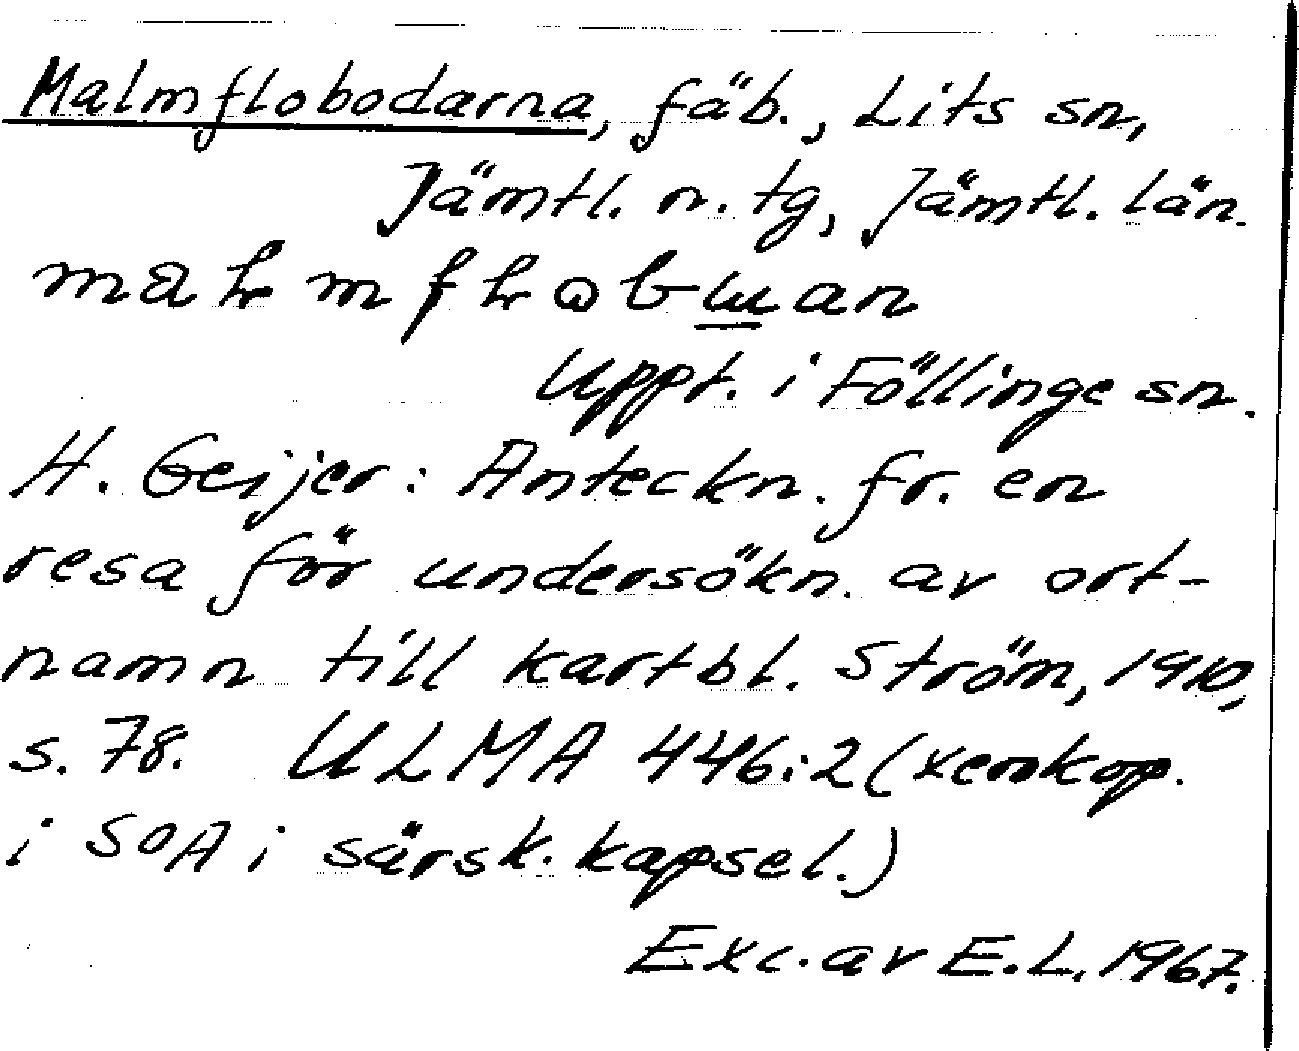 Malmflobodarna, fäb., Lits sn,
Jämtl. n. tg, Jämtl. län.
Uppt. i Föllinge sn.
H. Geijer: Anteckn. fr. en
resa för undersökn. av ort-
namn till kartbl. Ström, 1910,
s. 78. ULMA 446:2 (xerokop.
i SOA i särsk. kapsel.)
Exc. av E.L. 1967.